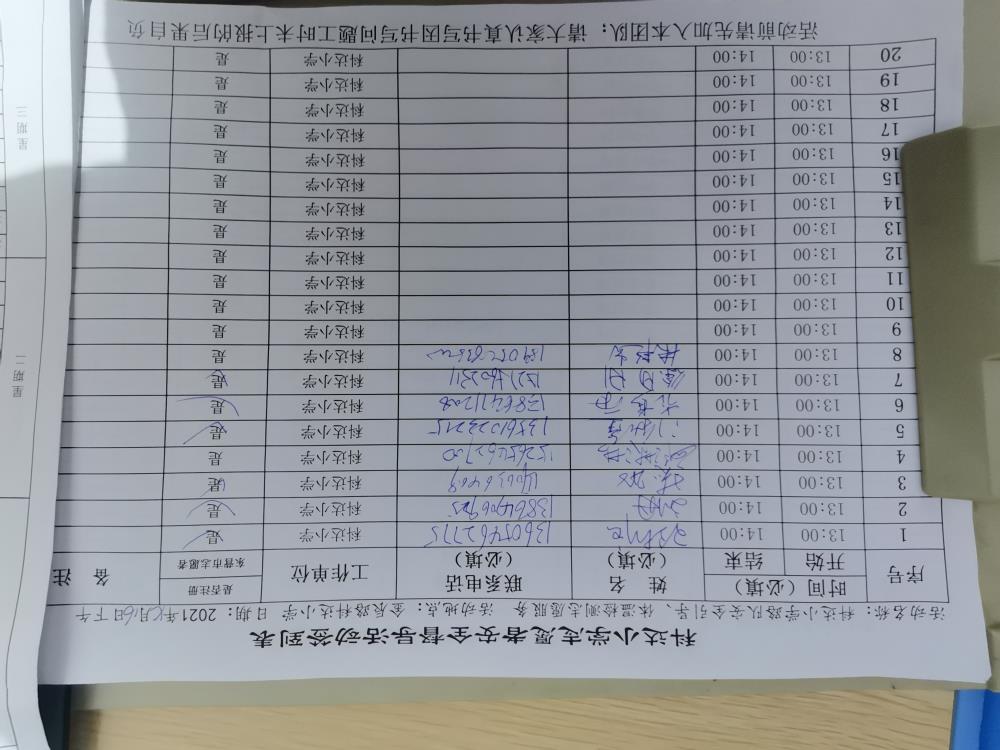 科达小学志愿者安全督导活动签到表
活动名称：科达小学路队安全引导、体温检测志愿服务 活动地点：金辰路科达小学 日期：2021年 月 日下午
序号 时间（必填） 姓 名（必填） 联系电话（必填） 工作单位 是否注册东营市志愿者 备 注
开始 结束
1 13:00 14:00 13605462775 科达小学 是
2 13:00 14:00 科达小学 是
3 13:00 14:00 科达小学 是
4 13:00 14:00 15265462700 科达小学 是
5 13:00 14:00 13561023215 科达小学 是
6 13:00 14:00 科达小学 是
7 13:00 14:00 科达小学 是
8 13:00 14:00 科达小学 是
9 13:00 14:00 科达小学 是
10 13:00 14:00 科达小学 是
11 13:00 14:00 科达小学 是
12 13:00 14:00 科达小学 是
13 13:00 14:00 科达小学 是
14 13:00 14:00 科达小学 是
15 13:00 14:00 科达小学 是
16 13:00 14:00 科达小学 是
17 13:00 14:00 科达小学 是
18 13:00 14:00 科达小学 是
19 13:00 14:00 科达小学 是
20 13:00 14:00 科达小学 是
活动前请先加入本团队：请大家认真书写因书写问题工时未上报的后果自负
星期二
星期三